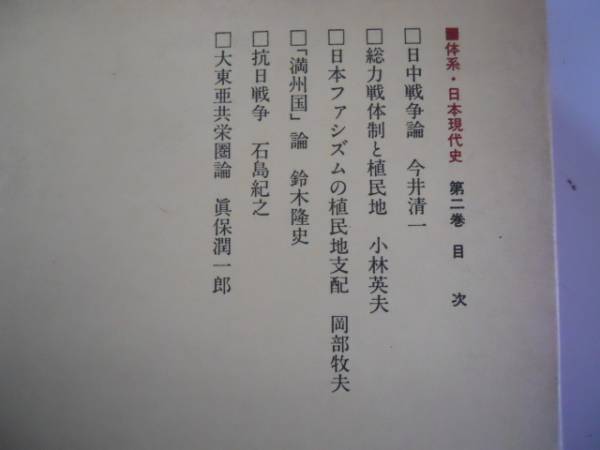 ■体系・日本現代史 第二巻 目 次
□日中戦争論 今井清一
□総力戦体制と植民地 小林英夫
□日本ファシズムの植民地支配 岡部牧夫
□「満州国」論 鈴木隆史
□抗日戦争 石島紀之
□大東亜共栄圏論 眞保潤一郎